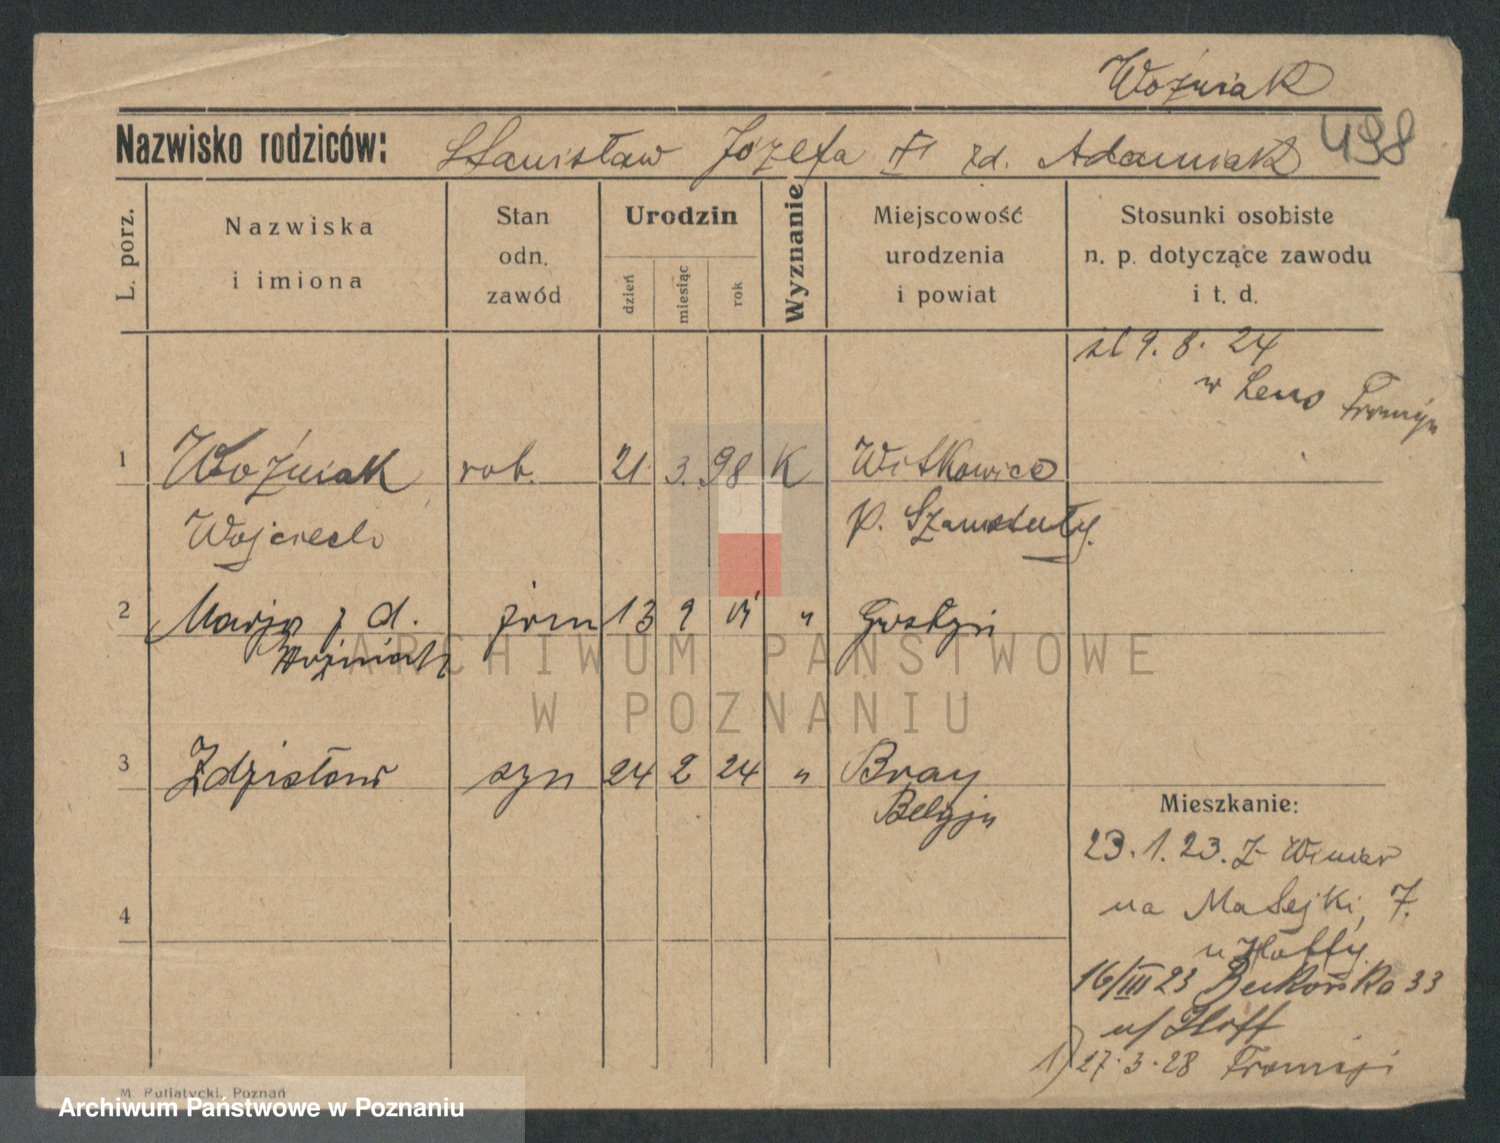 Woźniak
Nazwisko rodziców: Stanisław Józefa zd. Adamiak 498
L. porz.
Nazwiska
i imiona
Stan
odn.
zawód
Urodzin
dzień
miesiąc
rok
Wyznanie
Miejscowość
urodzenia
i powiat
Stosunki osobiste
n. p. dotyczące zawodu
i t. d.
9. 8. 24
w Lens
1 Woźniak rob. 21. 3. 98 K Witkowice
Wojciech p. Szamotuły
2 Marja z d. żona 13 9 " Gostyń
Woźniak
3 Zdzisław syn 24 2 24 " Bray
Belgja
Mieszkanie:
23. 1. 23. Z
na Matejki, 7.
u
16/III 23 Bukowska 33
4
u/ Hoff
1) 27. 3. 28 Francji
M. Putiatycki, Poznań
ARCHIWUM PAŃSTWOWE
W POZNANIU
Archiwum Państwowe w Poznaniu